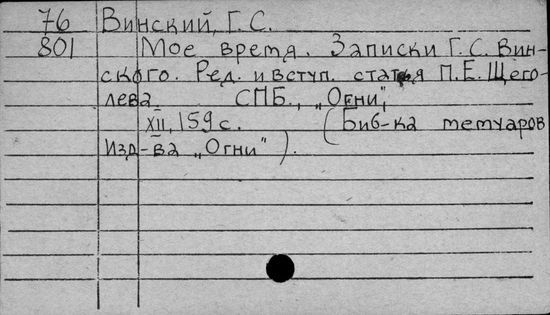 76 Винский, Г. С.
801 Мое время. Записки Г. С. Вин-
ского. Ред. и вступ. статья П. Е. Щего-
лева СПБ., „Огни",
XII, 159 с. (Биб-ка мемуаров
Изд-ва „Огни").